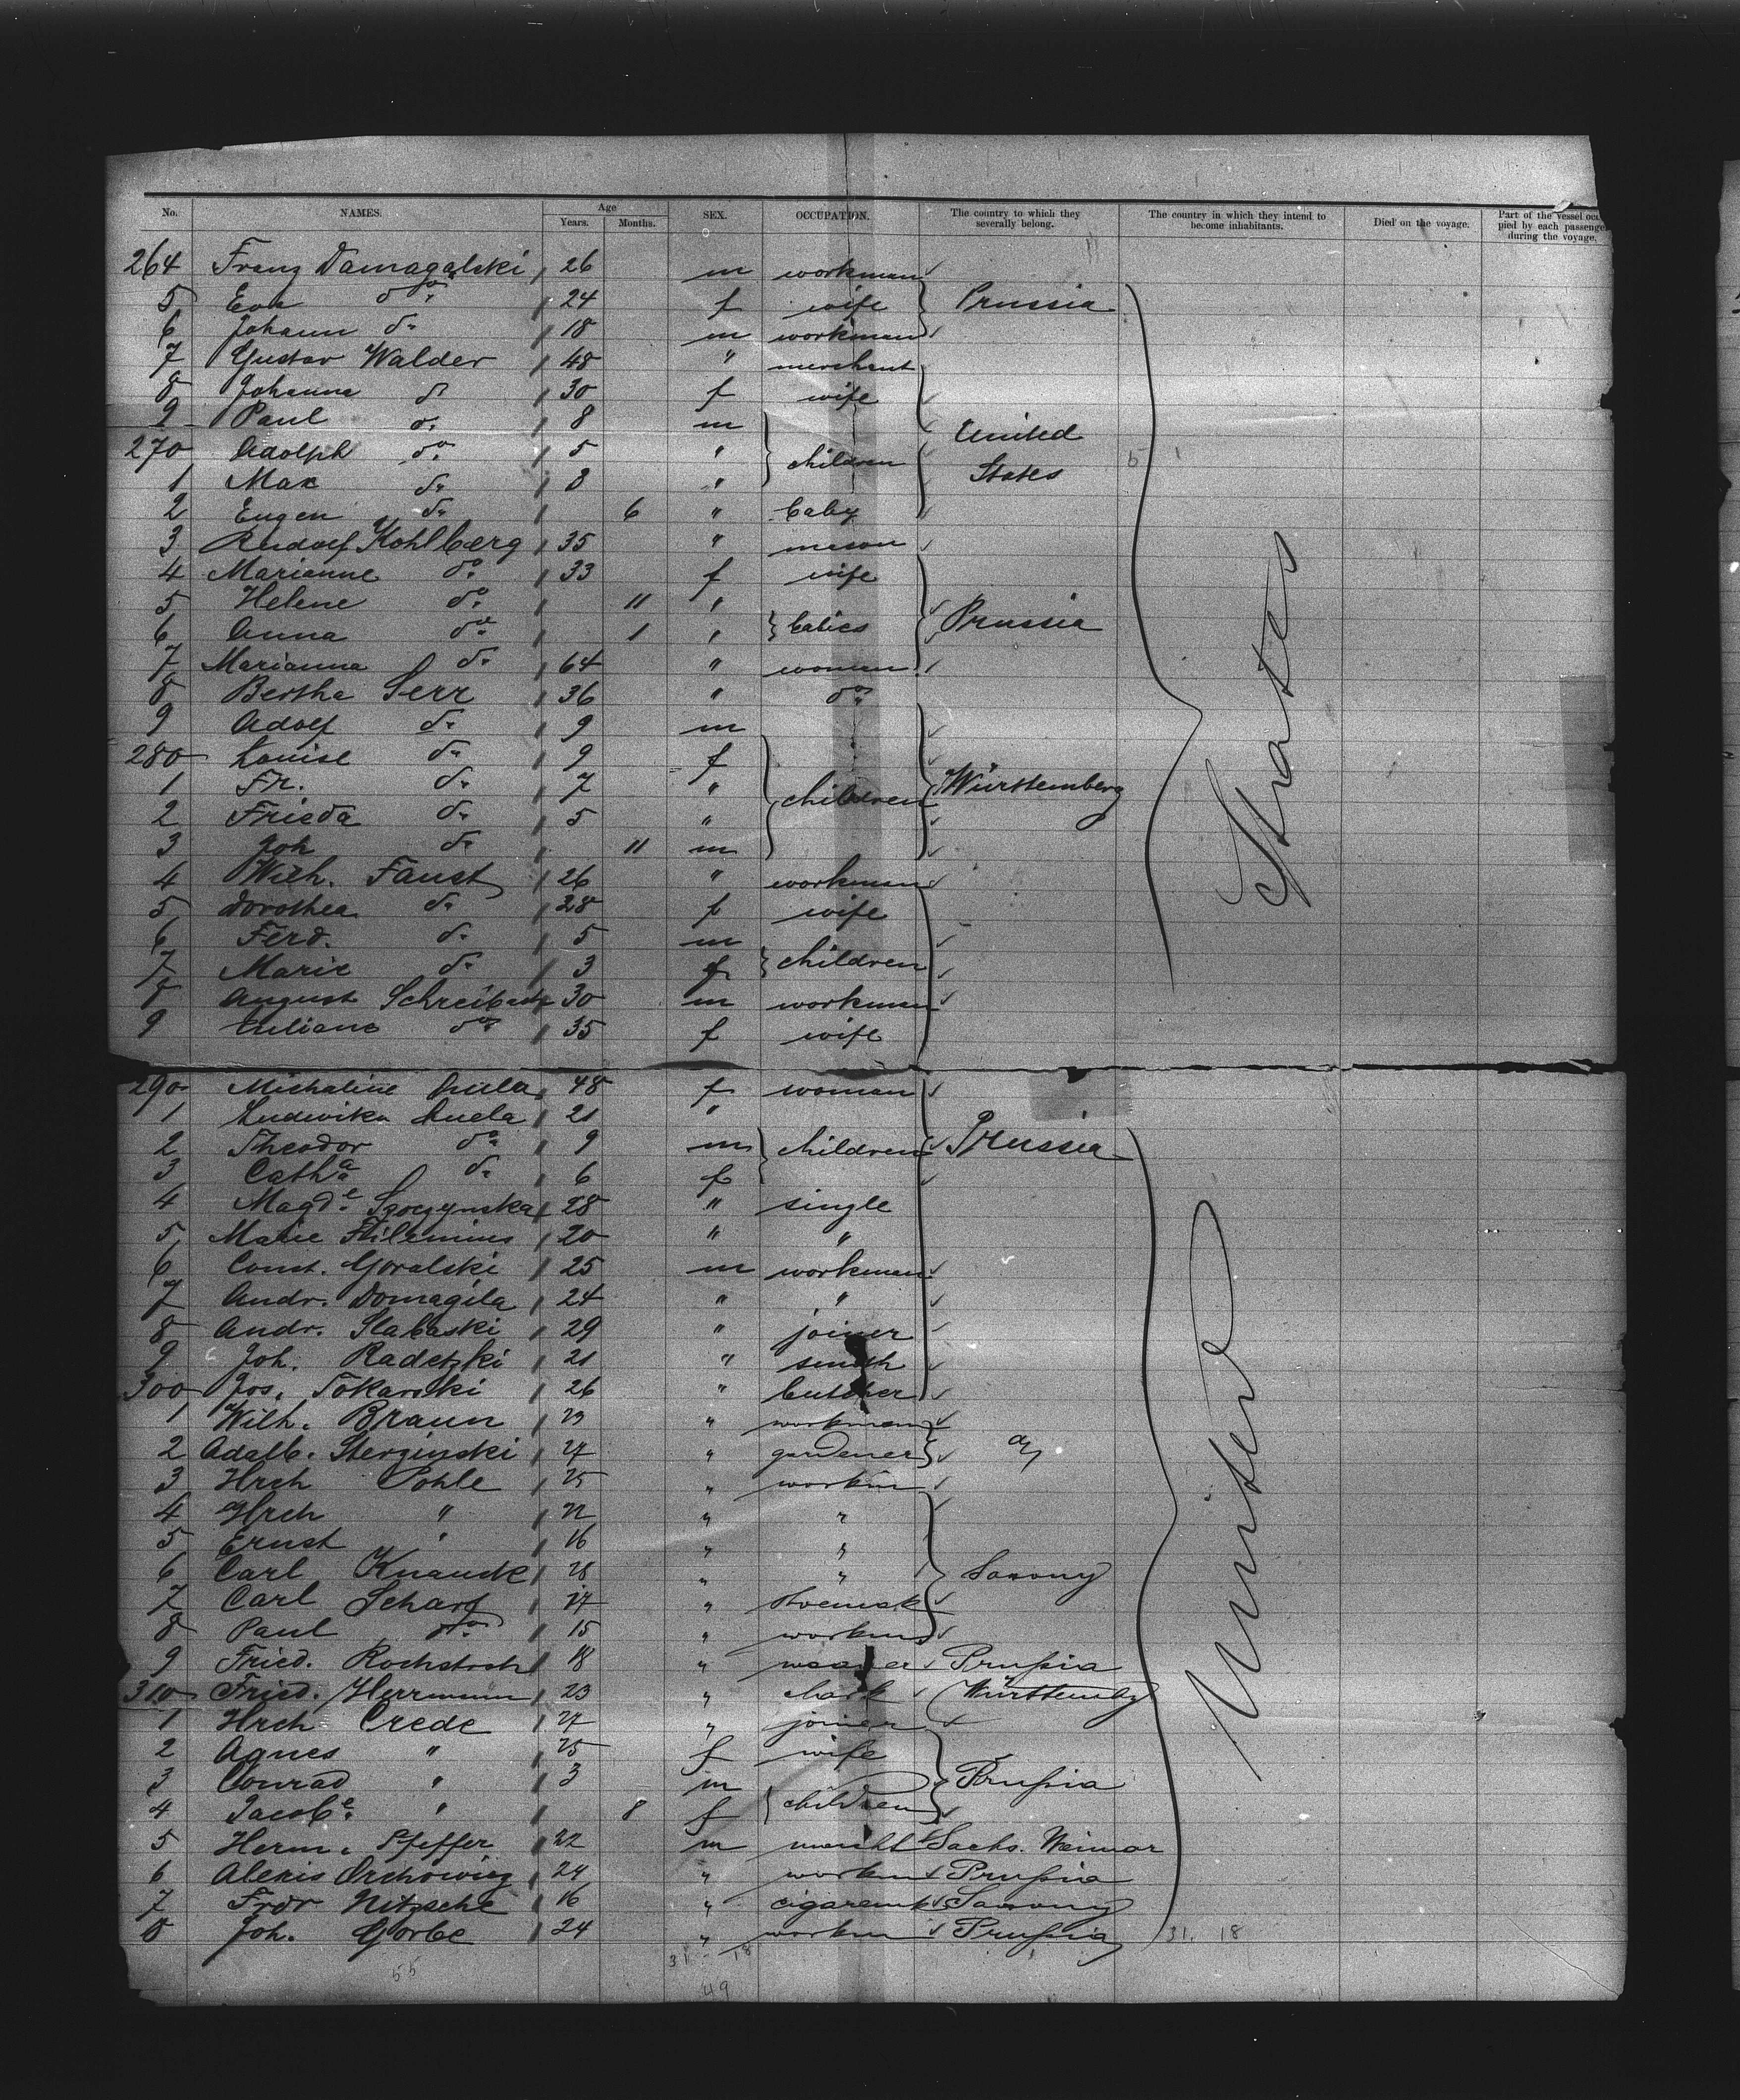 No. NAMES. Age Years. Months. SEX. OCCUPATION. The country to which they severally belong. The country in which they intend to become inhabitants. Died on the voyage. Part of the vessel occupied by each passenger during the voyage.
264 Franz Damagalski 26 m workman
5 Eva do. 24 f wife Prussia
6 Johann do. 18 m workman
7 Gustav Walder 48 " merchant
8 Johanna do. 30 f wife
9 Paul do. 8 m
270 Adolph do. 5 " children United
1 Max do. 3 " States
2 Eugen do. 6 " baby
3 Rudolf Kohlberg 35 " mason
4 Marianne do. 33 f wife
5 Helene do. 11 "
6 Anna do. 1 " babies Prussia
7 Marianna do. 64 " woman
8 Bertha Serr 36 " do.
9 Adolf do. 9 m
280 Louise do. 9 f
1 Fr. do. 7 " children Württemberg
2 Frieda do. 5 "
3 Joh do. 11 m
4 Wilh. Faust 26 " workman
5 Dorothea do. 28 f wife
6 Ferd. do. 5 m
7 Marie do. 3 f children
8 August 30 m workman
9 Juliane do. 35 f wife
290 Michaline 48 f woman
1 Ludwika 21 "
2 Theodor do. 9 m children Prussia
3 Catha. do. 6 f
4 Magde. 28 " single
5 Marie 20 " "
6 Const. Goralski 25 m workman
7 Andr. Domagila 24 " "
8 Andr. Slabaski 29 " joiner
9 Joh. Radetzki 21 " smith
300 Jos. Tokarski 26 " butcher
1 Wilh. Braun 23 " workman
2 Adalb. Sterzinski 27 " gardener dy
3 Hrch Pohle 25 " workm
4 Hrch " 22 " "
5 Ernst " 16 " "
6 Carl Knaucke 28 " " Saxony
7 Carl Scharf 27 "
8 Paul do. 15 " workm
9 Fried. 18 " Prussia
310 Fried. Herrmann 23 " Württembg
1 Hrch Crede 27 " joiner
2 Agnes " 25 f wife
3 Conrad " 3 m Prussia
4 Jacobe. " 8 f children
5 Herm. Pfeffer 22 m Sachs. Weimar
6 Alexis 24 " workm Prussia
7 Frdr Nitzsche 16 " cigaremk Saxony
8 Joh. Gorbe 24 " workm Prussia
United States
5 1
31. 18
31 18
55
49